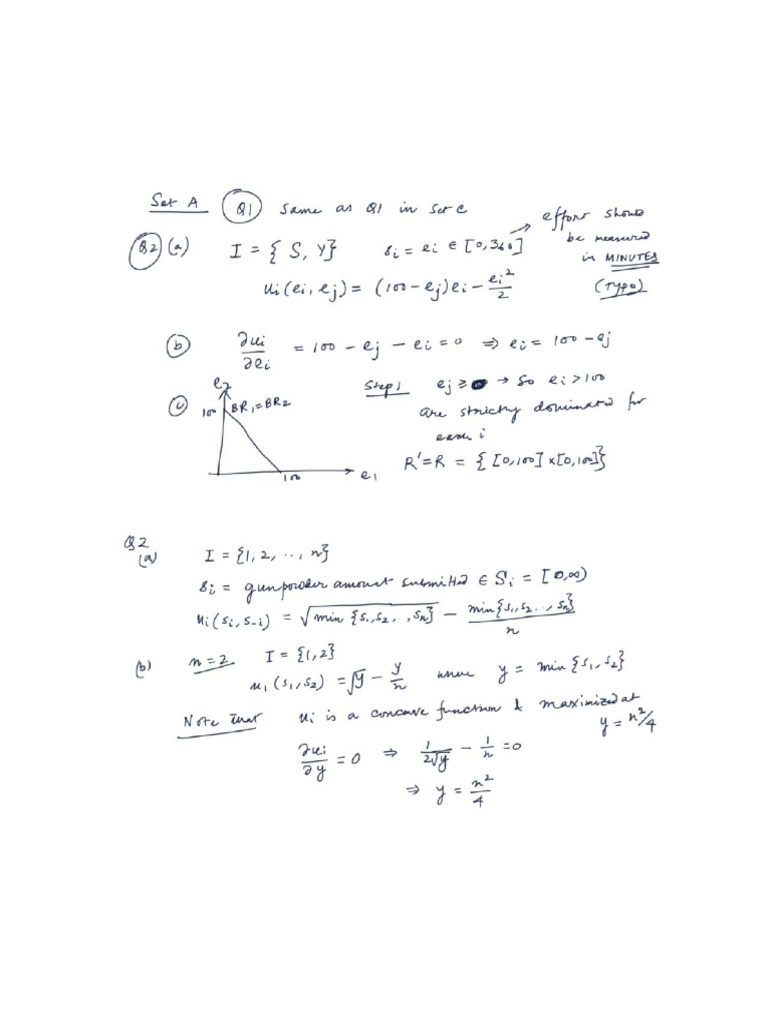 Set A Q1 Same as Q1 in Set C
Q2 (a) I = { S, Y} si = ei ∈ [0,360] → effort should be measured in MINUTES (TYPO)
ui(ei, ej) = (100 - ej)ei - ei²/2
(b) ∂ui/∂ei = 100 - ej - ei = 0 ⇒ ei = 100 - ej
(c) Step 1 ej ≥ 0 → So ei > 100
are strictly dominated for
each i
R' = R = { [0,100] x [0,100]}
e2
100 BR1 = BR2
100 e1
Q2
(a) I = {1, 2, .., n}
si = gunpowder amount submitted ∈ Si = [0,∞)
ui(si, s-i) = √min {s1, s2, .., sn} - min{s1, s2 .., sn}/n
(b) n = 2 I = {1,2}
u1 (s1, s2) = √y - y/n where y = min {s1, s2}
Note that ui is a concave function & maximized at y = n²/4
∂ui/∂y = 0 ⇒ 1/2√y - 1/n = 0
⇒ y = n²/4